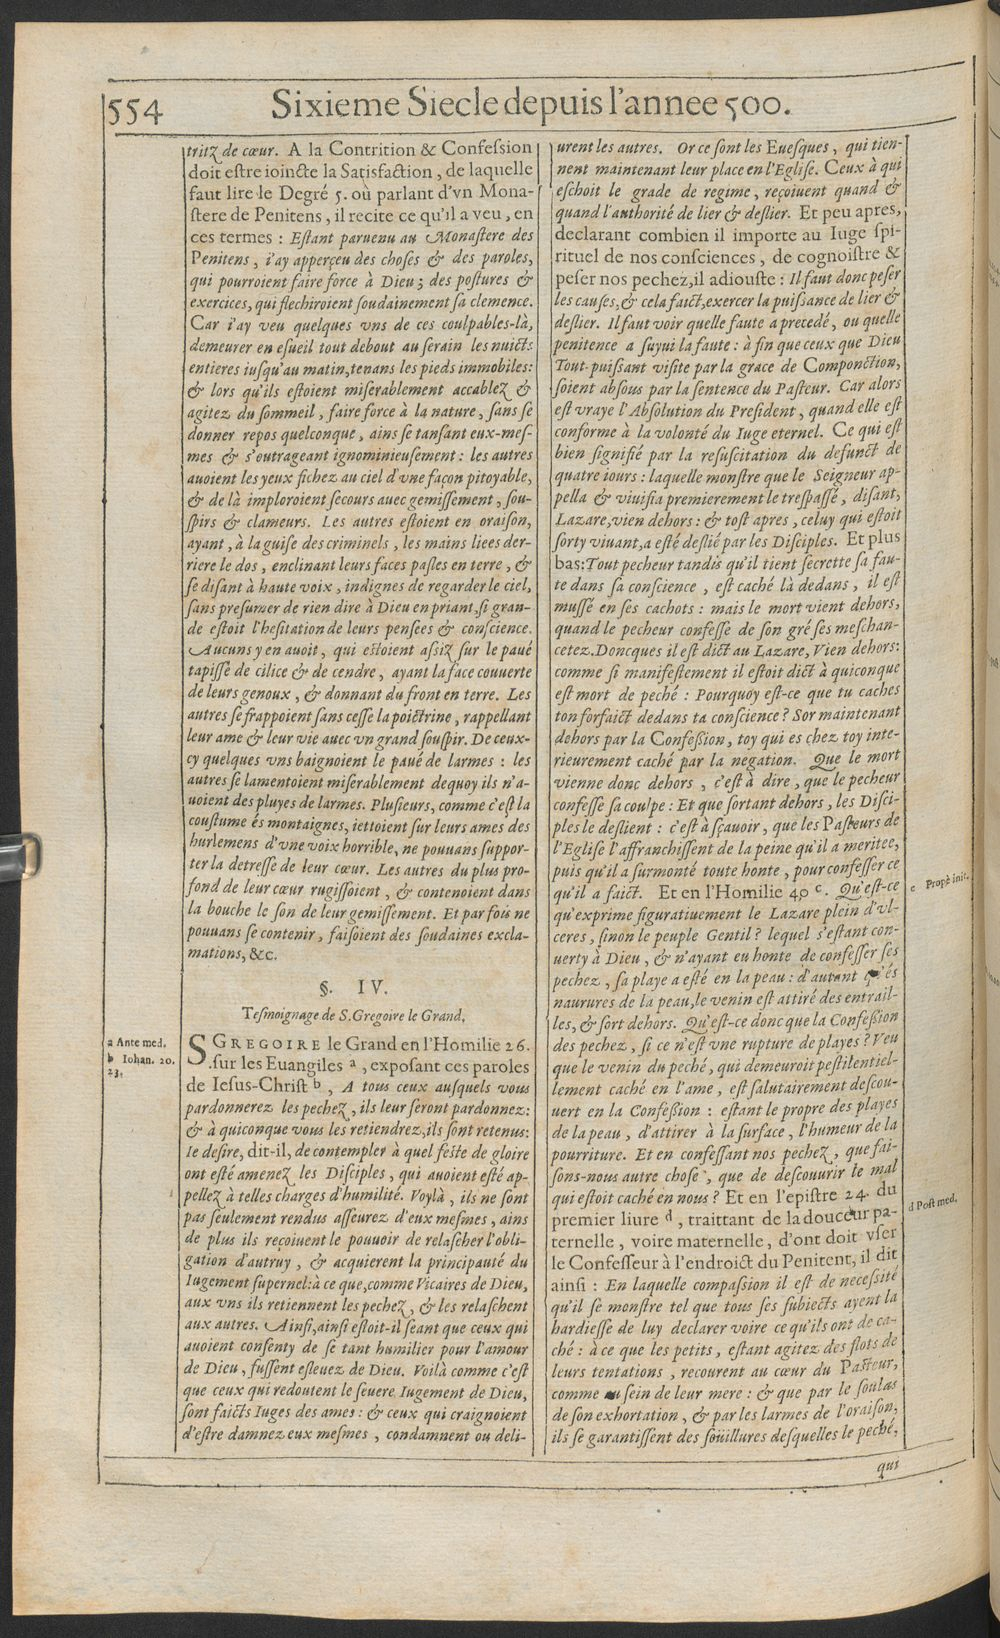 554 Sixieme Siecle depuis l'annee 500.
tritz de cœur. A la Contrition & Confession
doit estre ioincte la Satisfaction, de laquelle
faut lire le Degré 5. où parlant d'vn Mona-
stere de Penitens, il recite ce qu'il a veu, en
ces termes : Estant paruenu au Monastere des
Penitens, i'ay apperçeu des choses & des paroles,
qui pourroient faire force à Dieu; des postures &
exercices, qui flechiroient soudainement sa clemence.
Car i'ay veu quelques vns de ces coulpables-là,
demeurer en esueil tout debout au serain les nuicts
entieres iusqu'au matin, tenans les pieds immobiles:
& lors qu'ils estoient miserablement accablez &
agitez du sommeil, faire force à la nature, sans se
donner repos quelconque, ains se tansant eux-mes-
mes & s'outrageant ignominieusement : les autres
auoient les yeux fichez au ciel d'vne façon pitoyable,
& de là imploroient secours auec gemissement, sou-
spirs & clameurs. Les autres estoient en oraison,
ayant, à la guise des criminels, les mains liees der-
riere le dos, enclinant leurs faces pasles en terre, &
se disant à haute voix, indignes de regarder le ciel,
sans presumer de rien dire à Dieu en priant, si gran-
de estoit l'hesitation de leurs pensees & conscience.
Aucuns y en auoit, qui estoient assiz sur le paué
tapissé de cilice & de cendre, ayant la face couuerte
de leurs genoux, & donnant du front en terre. Les
autres se frappoient sans cesse la poictrine, rappellant
leur ame & leur vie auec vn grand souspir. De ceux-
cy quelques vns baignoient le paué de larmes : les
autres se lamentoient miserablement dequoy ils n'a-
uoient des pluyes de larmes. Plusieurs, comme c'est la
coustume és montaignes, iettoient sur leurs ames des
hurlemens d'vne voix horrible, ne pouuans suppor-
ter la detresse de leur cœur. Les autres du plus pro-
fond de leur cœur rugissoient, & contenoient dans
la bouche le son de leur gemissement. Et par fois ne
pouuans se contenir, faisoient des soudaines excla-
mations, &c.
§. IV.
Tesmoignage de S. Gregoire le Grand.
a Ante med.
b Iohan. 20.
23.
S GREGOIRE le Grand en l'Homilie 26.
.sur les Euangiles a, exposant ces paroles
de Iesus-Christ b, A tous ceux ausquels vous
pardonnerez les pechez, ils leur seront pardonnez:
& à quiconque vous les retiendrez, ils sont retenus:
Ie desire, dit-il, de contempler à quel feste de gloire
ont esté amenez les Disciples, qui auoient esté ap-
pellez à telles charges d'humilité. Voylà, ils ne sont
pas seulement rendus asseurez d'eux mesmes, ains
de plus ils reçoiuent le pouuoir de relascher l'obli-
gation d'autruy, & acquierent la principauté du
Iugement supernel: à ce que, comme Vicaires de Dieu,
aux vns ils retiennent les pechez, & les relaschent
aux autres. Ainsi, ainsi estoit-il seant que ceux qui
auoient consenty de se tant humilier pour l'amour
de Dieu, fussent esleuez de Dieu. Voilà comme c'est
que ceux qui redoutent le seuere Iugement de Dieu,
sont faicts Iuges des ames : & ceux qui craignoient
d'estre damnez eux mesmes, condamnent ou deli-
urent les autres. Or ce sont les Euesques, qui tien-
nent maintenant leur place en l'Eglise. Ceux à qui
eschoit le grade de regime, reçoiuent quand &
quand l'authorité de lier & deslier. Et peu apres,
declarant combien il importe au Iuge spi-
rituel de nos consciences, de cognoistre &
peser nos pechez, il adiouste : Il faut donc peser
les causes, & cela faict, exercer la puissance de lier &
deslier. Il faut voir quelle faute a precedé, ou quelle
penitence a suyui la faute : à fin que ceux que Dieu
Tout-puissant visite par la grace de Componction,
soient absous par la sentence du Pasteur. Car alors
est vraye l'Absolution du President, quand elle est
conforme à la volonté du Iuge eternel. Ce qui est
bien signifié par la resuscitation du defunct de
quatre iours : laquelle monstre que le Seigneur ap-
pella & viuifia premierement le trespassé, disant,
Lazare, vien dehors : & tost apres, celuy qui estoit
sorty viuant, a esté deslié par les Disciples. Et plus
bas: Tout pecheur tandis qu'il tient secrette sa fau-
te dans sa conscience, est caché là dedans, il est
mussé en ses cachots : mais le mort vient dehors,
quand le pecheur confesse de son gré ses meschan-
cetez. Doncques il est dict au Lazare, Vien dehors:
comme si manifestement il estoit dict à quiconque
est mort de peché : Pourquoy est-ce que tu caches
ton forfaict dedans ta conscience? Sor maintenant
dehors par la Confession, toy qui es chez toy inte-
rieurement caché par la negation. Que le mort
vienne donc dehors, c'est à dire, que le pecheur
confesse sa coulpe : Et que sortant dehors, les Disci-
ples le deslient : c'est à sçauoir, que les Pasteurs de
l'Eglise l'affranchissent de la peine qu'il a meritee,
puis qu'il a surmonté toute honte, pour confesser ce
qu'il a faict. Et en l'Homilie 40 c. Qu'est-ce
c Propè init.
qu'exprime figuratiuement le Lazare plein d'vl-
ceres, sinon le peuple Gentil? lequel s'estant con-
uerty à Dieu, & n'ayant eu honte de confesser ses
pechez, sa playe a esté en la peau : d'autant qu'és
naurures de la peau, le venin est attiré des entrail-
les, & sort dehors. Qu'est-ce donc que la Confession
des pechez, si ce n'est vne rupture de playes? Veu
que le venin du peché, qui demeuroit pestilentiel-
lement caché en l'ame, est salutairement descou-
uert en la Confession : estant le propre des playes
de la peau, d'attirer à la surface, l'humeur de la
pourriture. Et en confessant nos pechez, que fai-
sons-nous autre chose, que de descouurir le mal
qui estoit caché en nous? Et en l'epistre 24. du
d Post med.
premier liure d, traittant de la douceur pa-
ternelle, voire maternelle, d'ont doit vser
le Confesseur à l'endroict du Penitent, il dit
ainsi : En laquelle compassion il est de necessité
qu'il se monstre tel que tous ses subiects ayent la
hardiesse de luy declarer voire ce qu'ils ont de ca-
ché : à ce que les petits, estant agitez des flots de
leurs tentations, recourent au cœur du Pasteur,
comme au sein de leur mere : & que par le soulas
de son exhortation, & par les larmes de l'oraison,
ils se garantissent des souïllures desquelles le peché,
qui